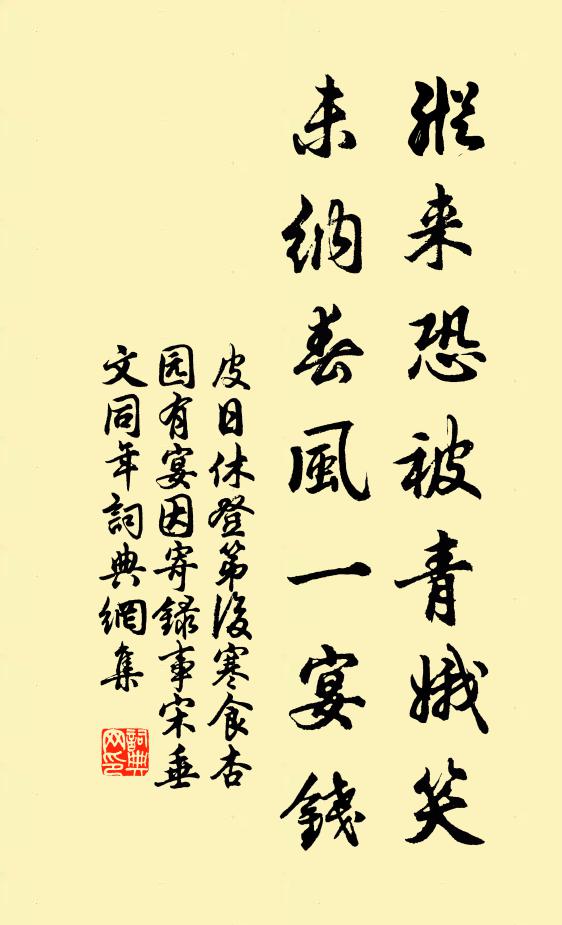 縱来恐被青娥笑
未纳春風一宴錢
皮日休登第後寒食杏
园有宴因寄録事宋垂
文同年詞典網集
詞典
网印